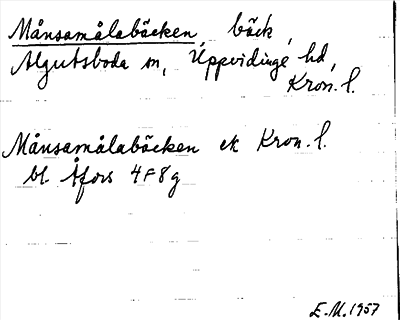 Månsamålabäcken bäck,
Algutsboda sn, Uppvidinge hd,
Kron. l.
Månsamålabäcken ek Kron. l.
bl. Åfors 4F8g
E.M. 1957